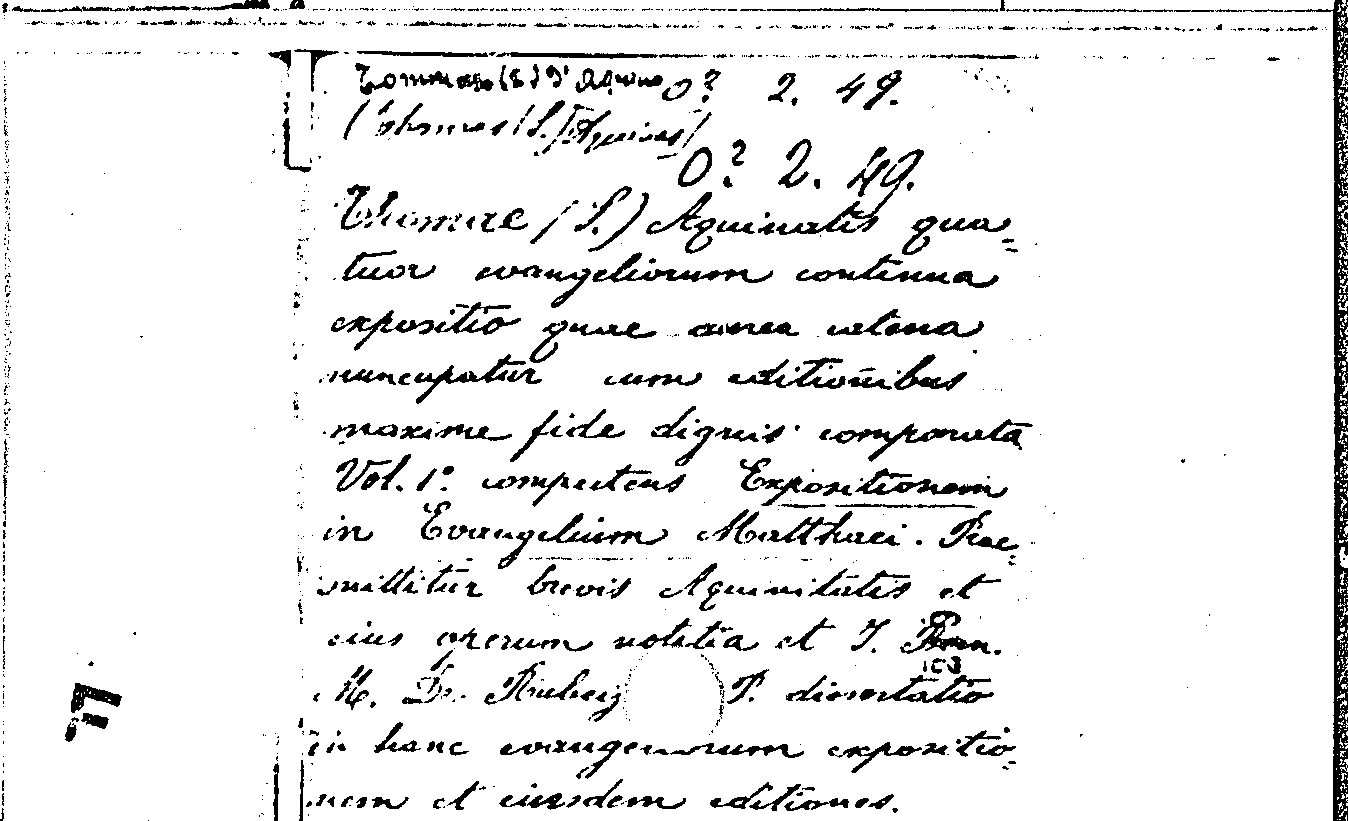 Tommaso (S.) d' Aquino O? 2. 49.
(Thomas (S.) Aquinas)
O? 2. 49.
Thomae (S.) Aquinatis qua=
tuor evangeliorum continua
expositio quae aurea catena
nuncupatur cum editionibus
maxime fide dignis comparata
Vol. 1º complectens Expositionem
in Evangelium Matthaei. Prae=
mittitur brevis Aquinitatis et
eius operum notitia et J.
M. De Rubeis P. dissertatio
in hanc evangeliorum expositio=
nem et eiusdem editiones.